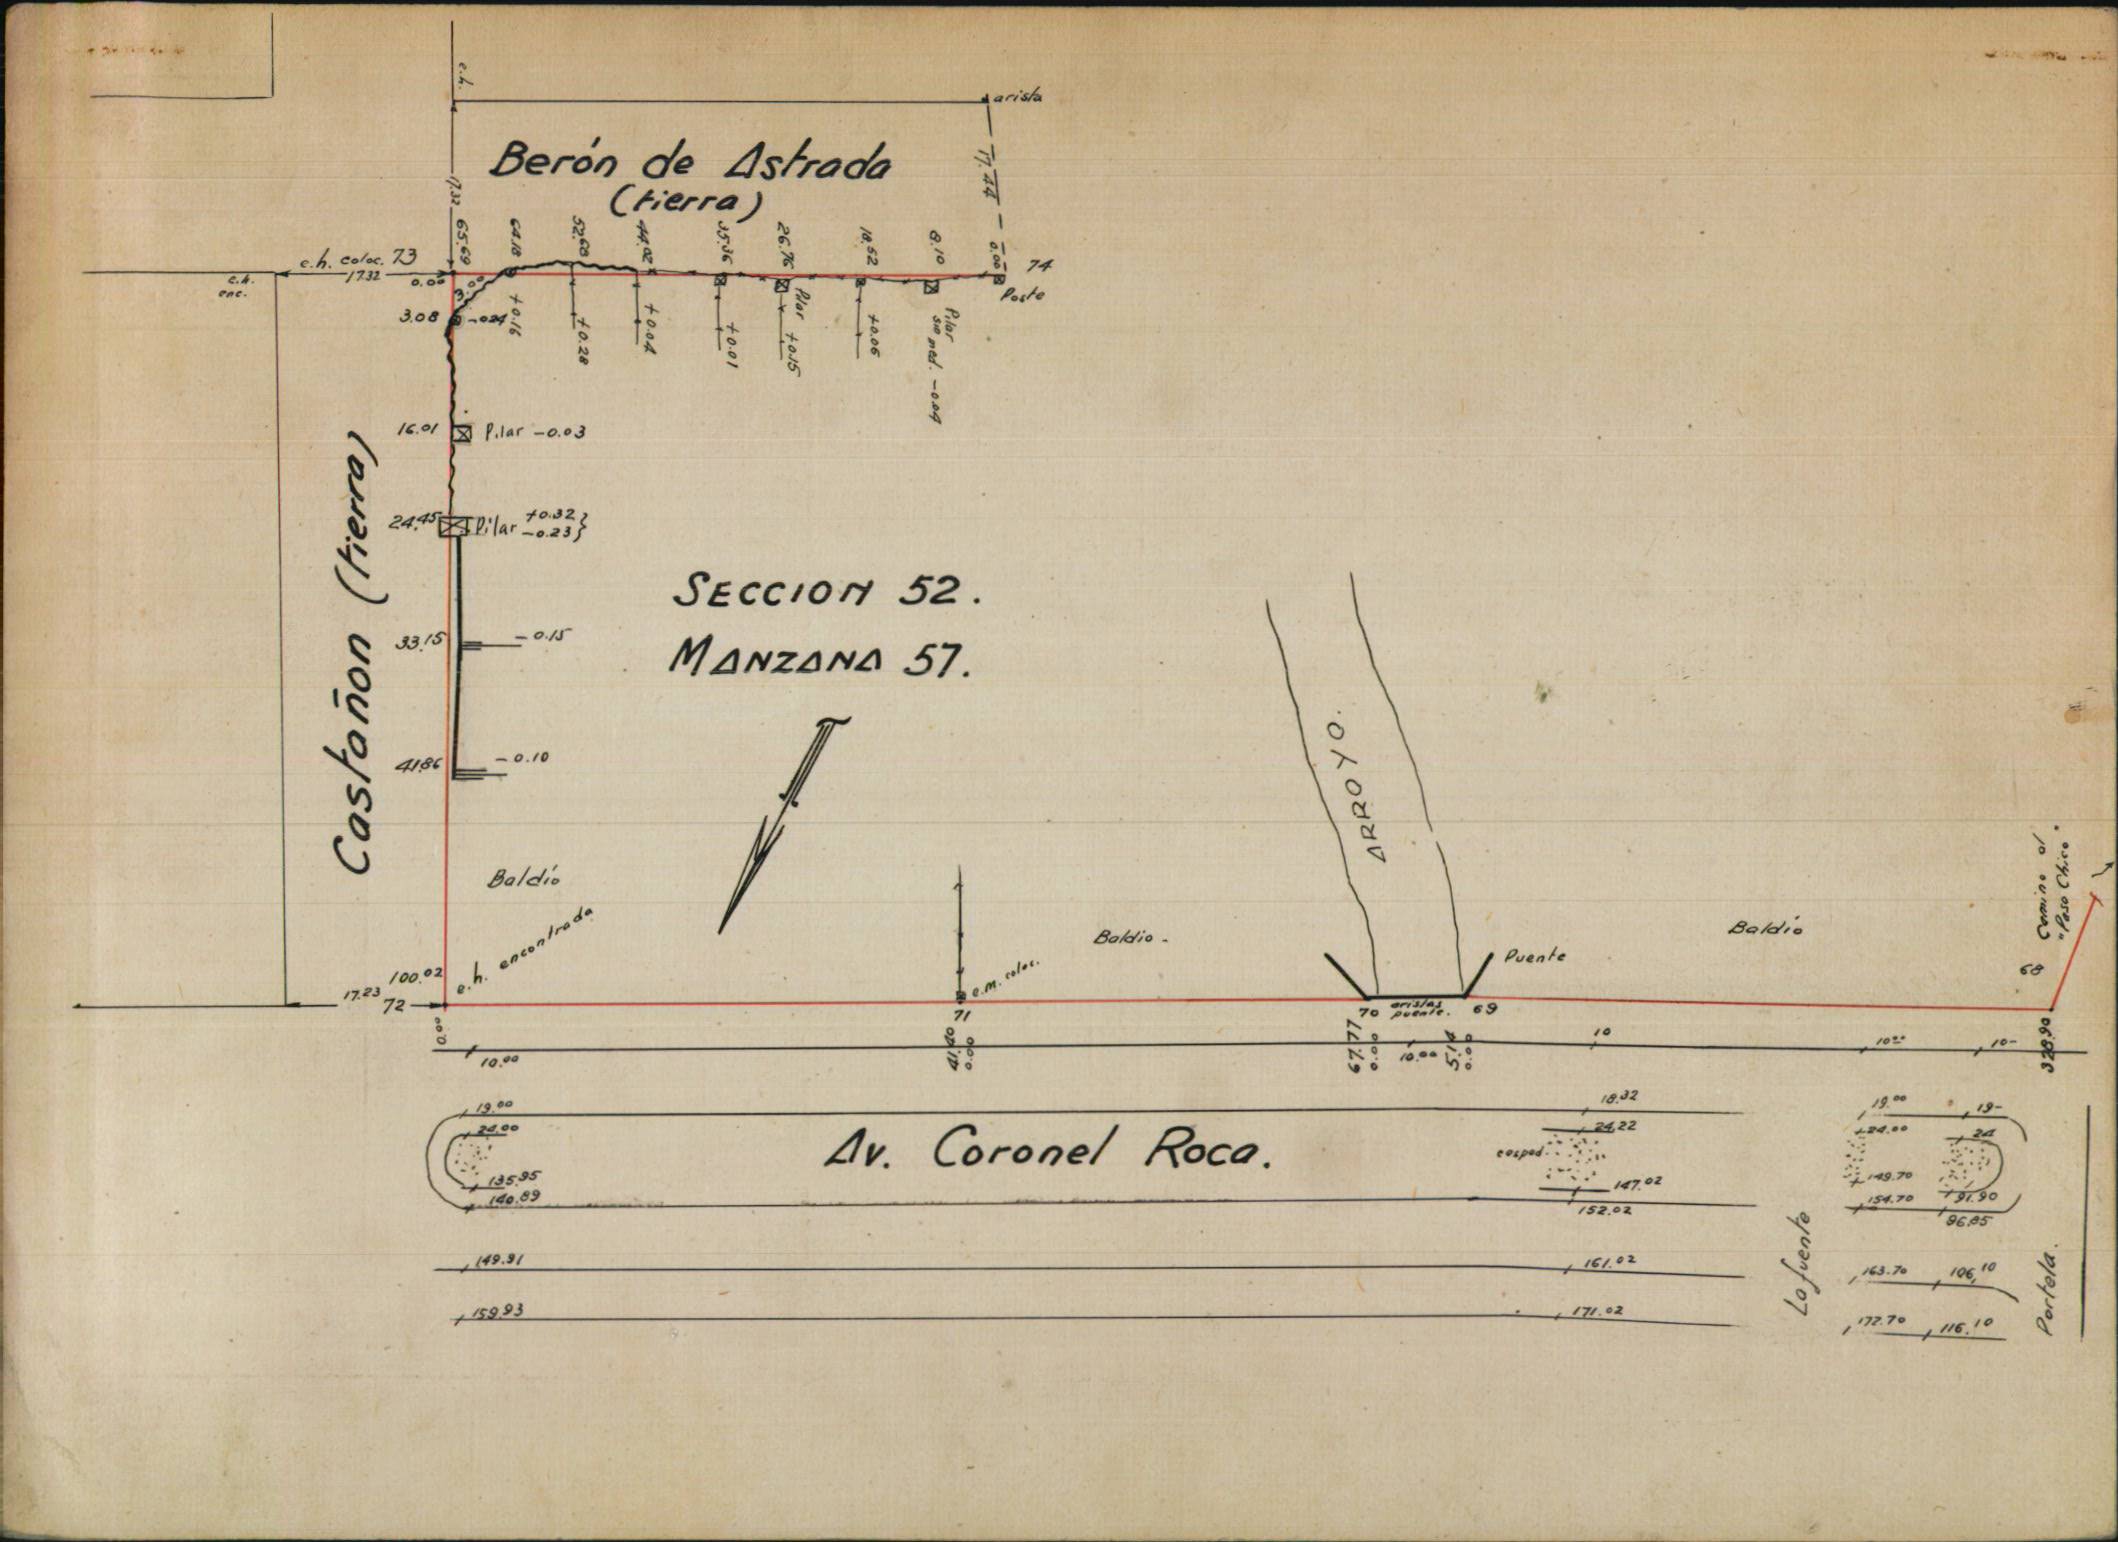 e.h.
arista
Berón de Astrada
(tierra)
17.32
17.44
65.69
64.18
52.68
44.02
35.36
26.76
18.52
8.10
0.00
e.h. coloc. 73
17.32
0.00
e.h.
enc.
74
Poste
3.08
-0.24
+0.16
+0.28
+0.04
+0.01
Pilar
+0.15
+0.06
Pilar
sin med. -0.04
16.01
Pilar -0.03
24.45
Pilar +0.32
-0.23
Castañon (tierra)
33.15
-0.15
41.86
-0.10
SECCION 52.
MANZANA 57.
ARROYO.
Baldío
e.h. encontrada
100.02
17.23
72
0.00
e.m. coloc.
71
41.40
0.00
Baldío -
Puente
70
aristas
puente.
69
67.77
0.00
10.00
5.14
0.00
Baldío
Camino al
"Paso Chico".
68
328.90
10.00
10
10.00
10-
19.00
24.00
135.95
140.89
149.91
159.93
Av. Coronel Roca.
18.32
24.22
cesped
147.02
152.02
161.02
171.02
Lafuente
19.00
24.00
149.70
154.70
163.70
172.70
19-
24
91.90
96.85
106.10
116.10
Portela.